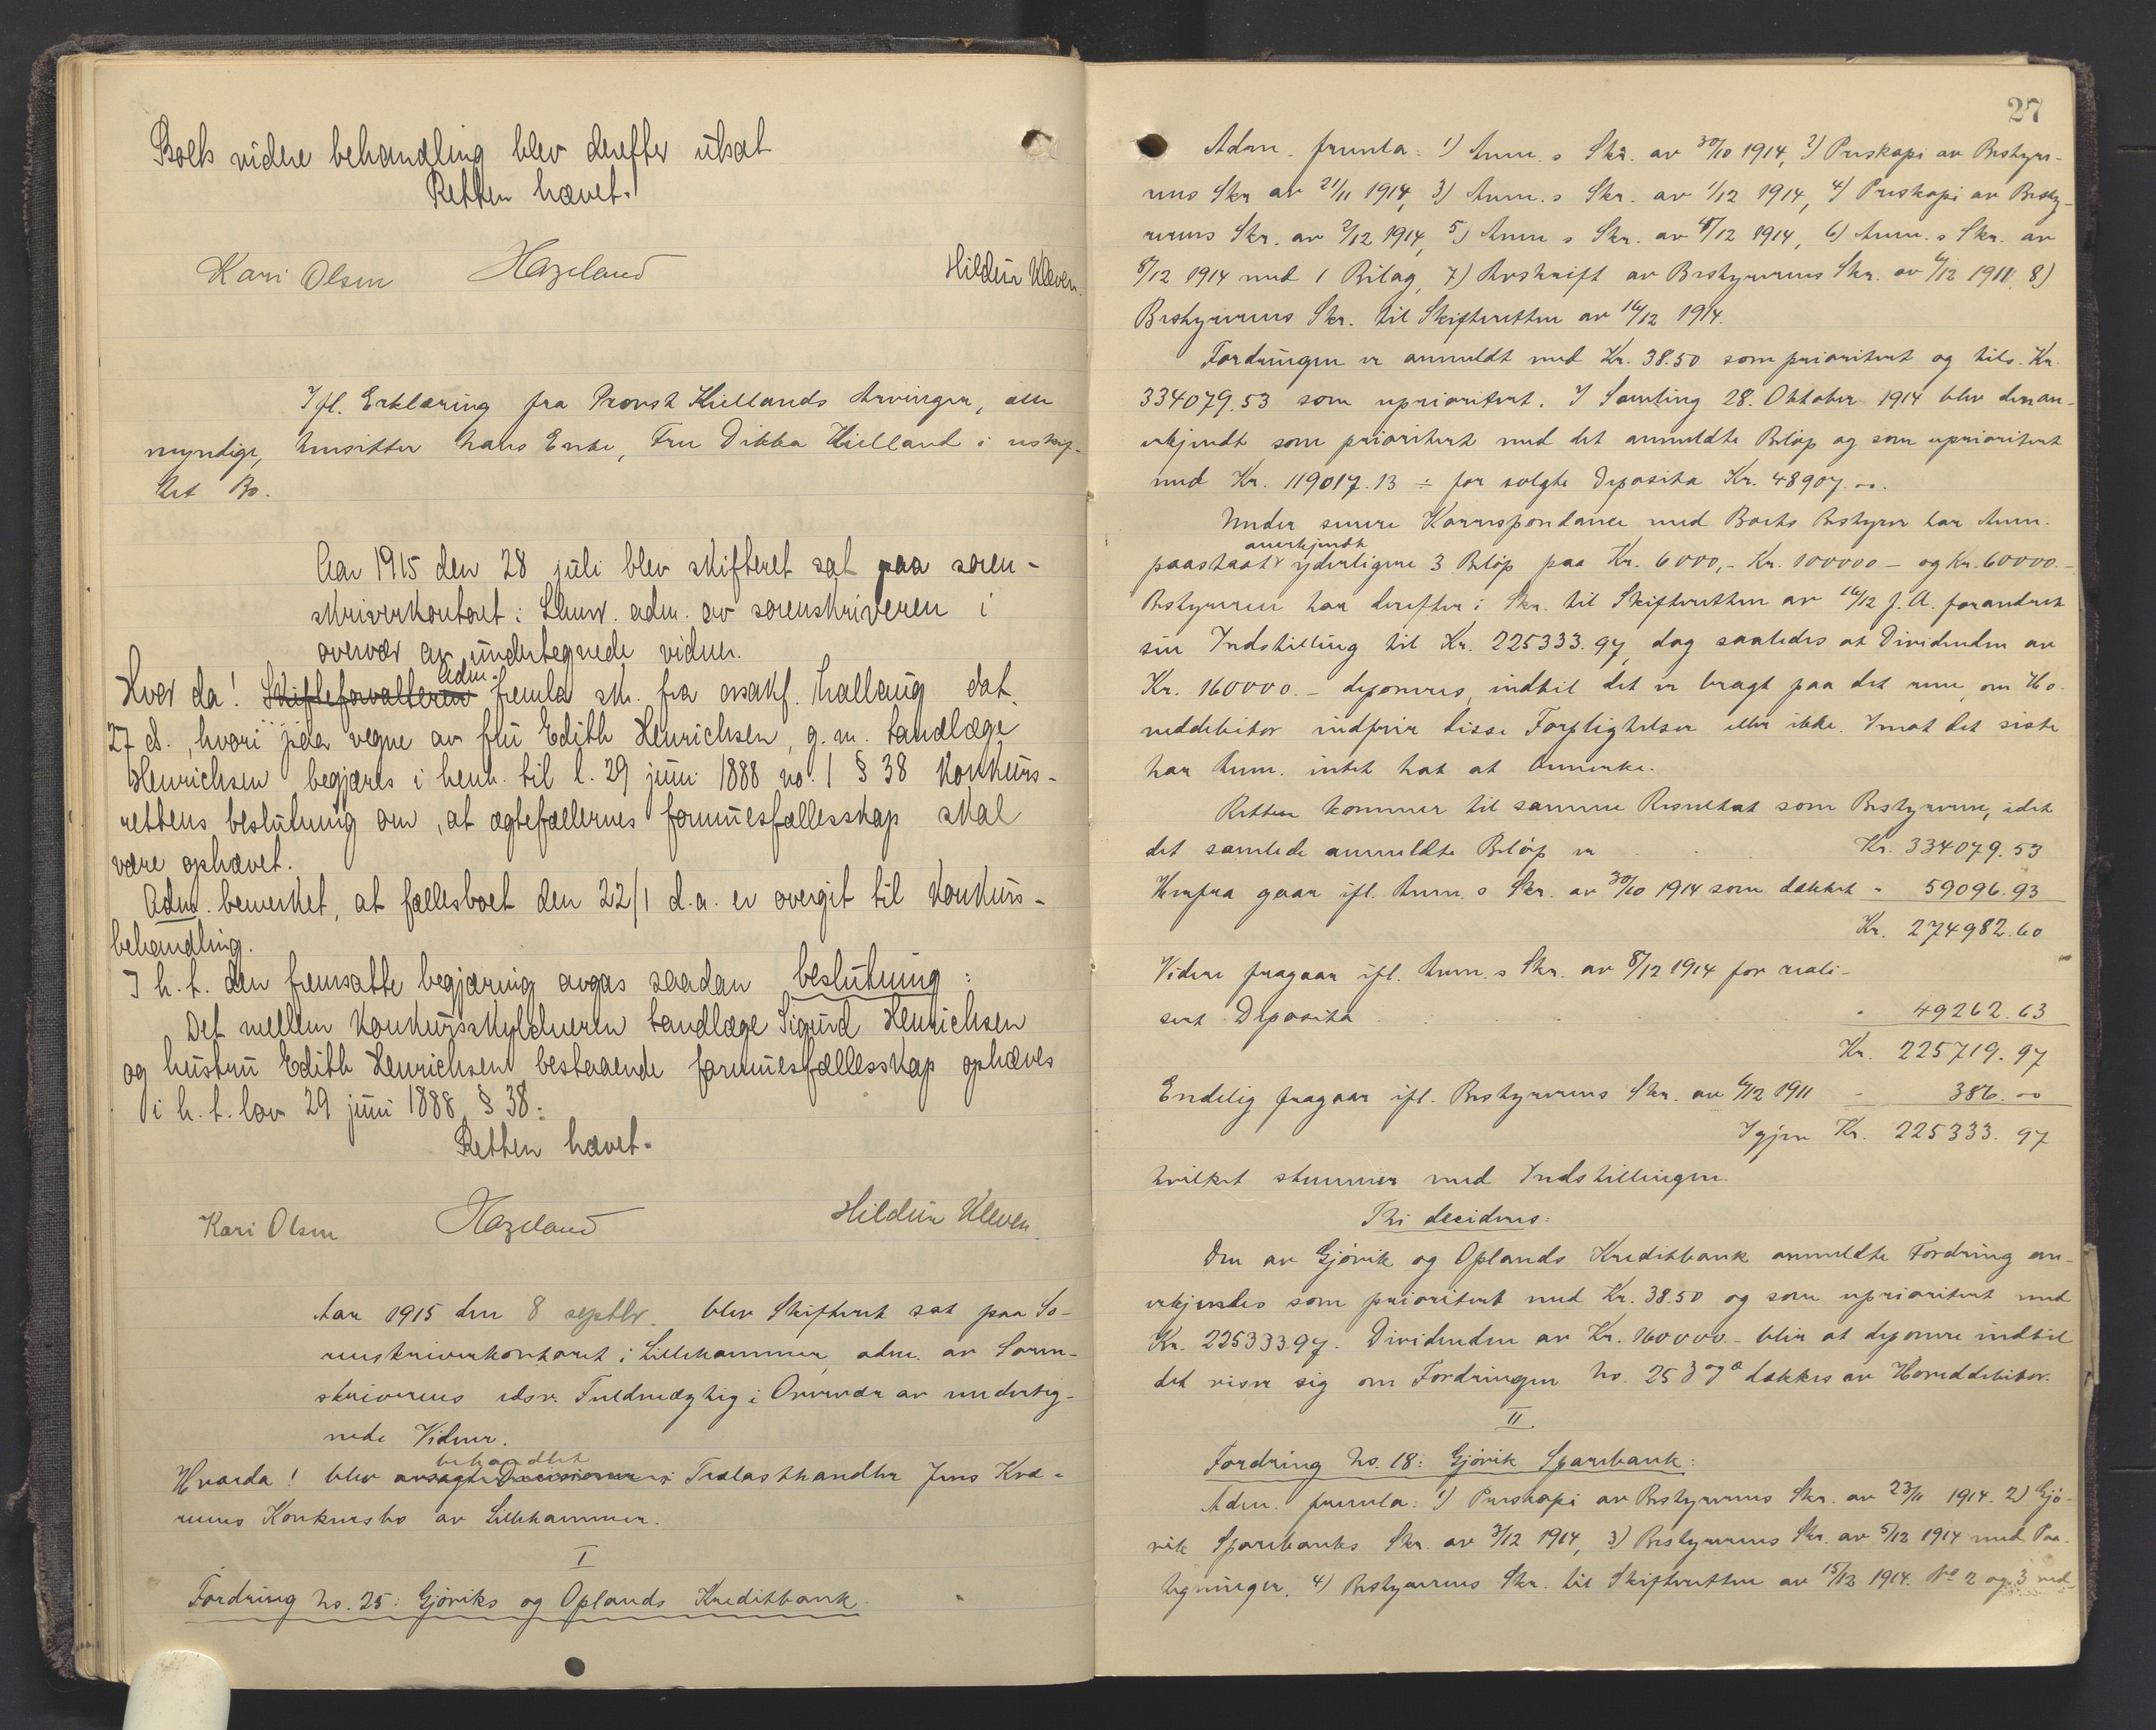 Boets videre behandling blev derefter utsat
Retten hævet.
Kari Olsen Hazeland Hildur Kleven.
Ifl. Erklæring fra Provst Kiellands Arvinger, alle
myndige, hensitter hans Enke, Fru Dikka Kielland i uskif-
tet Bo.
Aar 1915 den 28 juli blev skifteret sat paa soren-
skriverkontoret i Lhmr. adm. av sorenskriveren i
overvær av undertegnede vidner.
Hvor da! Skifteforvalteren adm. fremla sk. fra o.r.sakf. Hallaug dat.
27 ds., hvori paa vegne av fru Edith Henrichsen, g. m. tandlæge
Henrichsen begjæres i henh. til l. 29 juni 1888 no. 1 § 38 konkurs-
rettens beslutning om, at ægtefællernes formuesfællesskap skal
være ophævet.
Adm. bemerket, at fællesboet den 22/1 d.a. er overgit til konkurs-
behandling.
I h. t. den fremsatte begjæring avgas saadan beslutning:
Det mellem konkursskyldneren tandlæge Sigurd Henrichsen
og hustru Edith Henrichsen bestaaende formuesfællesskap ophæves
i h. t. lov 29 juni 1888 § 38.
Retten hævet.
Kari Olsen Hazeland Hildur Kleven.
Aar 1915 den 8 septbr. blev Skifteret sat paa So-
renskriverkontoret i Lillehammer, adm. av Soren-
skriverens edsv. Fuldmægtig i Overvær av underteg-
nede Vidner.
Hvorda! blev avsagt Decisioner behandlet i Trælasthandler Jens Kvæ-
rnes Konkursbo av Lillehammer.
I
Fordring No. 25: Gjøviks og Oplands Kreditbank
27
Adm. fremla: 1) Anm.s Skr. av 30/10 1914, 2) Preskopi av Bestyre-
rens Skr av 21/11 1914, 3) Anm.s Skr. av 1/12 1914, 4) Preskopi av Besty-
rerens Skr. av 2/12 1914, 5) Anm s Skr. av 4/12 1914, 6) Anm. s Skr. av
8/12 1914 med 1 Bilag, 7) Avskrift av Bestyrerens Skr. av 6/12 1911, 8)
Bestyrerens Skr. til Skifteretten av 16/12 1914.
Fordringen er anmeldt med Kr. 38.50 som prioritert og tils. Kr.
334079.53 som uprioritert. I Samling 28. Oktober 1914 blev den an-
erkjendt som prioritert med det anmeldte Beløp og som uprioritert
med Kr. 119017.13 ÷ for solgte Deposita Kr. 48907.00.
Under senere Korrespondance med Boets Bestyrer har Anm.
paastaat anerkjendt yderligere 3 Beløp paa Kr. 6000,- Kr. 100000 - og Kr. 60000.-
Bestyreren har derefter i Skr. til Skifteretten av 16/12 f. A. forandret
sin Indstilling til Kr. 225333.97, dog saaledes at Dividenden av
Kr. 160000.- deponeres, indtil det er bragt paa det rene, om Ho-
veddebitor indfrir disse Forpligtelser eller ikke. Imot det siste
har Anm. intet hat at bemerke.
Retten kommer til samme Resultat som Bestyreren, idet
det samlede anmeldte Beløp er Kr. 334079.53
Herfra gaar ifl. Anm. s Skr. av 30/10 1914 som dækket " 59096.93
Kr. 274982.60
Videre fragaar ifl. Anm. s Skr. av 8/12 1914 for reali-
sert Deposita " 49262.63
Kr. 225719.97
Endelig fragaar ifl. Bestyrerens Skr. av 6/12 1911 - 386.00
Igjen Kr. 225333.97
hvilket stemmer med Indstillingen.
Thi decideres:
Den av Gjøvik og Oplands Kreditbank anmeldte Fordring an-
erkjendes som prioritert med Kr. 38.50 og som uprioritert med
Kr. 225333.97. Dividenden av Kr. 160000.- blir at deponere indtil
det viser sig om Fordringen No. 25 3 og dækkes av Hoveddebitor.
II
Fordring No. 18: Gjøvik Sparebank:
Adm. fremla: 1) Preskopi av Bestyrerens Skr. av 23/11 1914. 2) Gjø-
vik Sparebanks Skr. av 3/12 1914, 3) Bestyrerens Skr. av 5/12 1914 med Paa-
tegninger. 4) Bestyrerens Skr. til Skifteretten av 15/12 1914. No 2 og 3 ved-